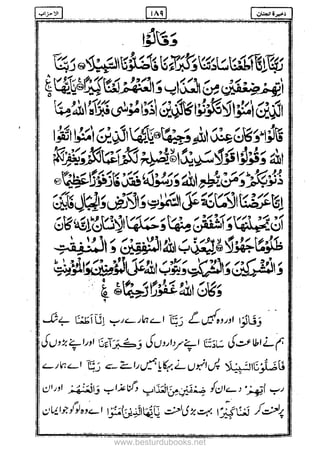 الاحزاب ۱۸۹ ذخیرۃ الجنان
وَقَالُوْا
رَبَّنَاۤ اِنَّاۤ اَطَعْنَا سَادَتَنَا وَكُبَرَآءَنَا فَاَضَلُّوْنَا السَّبِيْلَا۝ رَبَّنَاۤ
اٰتِهِمْ ضِعْفَيْنِ مِنَ الْعَذَابِ وَالْعَنْهُمْ لَعْنًا كَبِيْرًا۝ يٰۤاَيُّهَا
الَّذِيْنَ اٰمَنُوْا لَا تَكُوْنُوْا كَالَّذِيْنَ اٰذَوْا مُوْسٰى فَبَرَّاَهُ اللّٰهُ مِمَّا
قَالُوْا ؕ وَكَانَ عِنْدَ اللّٰهِ وَجِيْهًا۝ يٰۤاَيُّهَا الَّذِيْنَ اٰمَنُوا اتَّقُوا
اللّٰهَ وَقُوْلُوْا قَوْلًا سَدِيْدًا۝ يُّصْلِحْ لَكُمْ اَعْمَالَكُمْ وَيَغْفِرْ لَكُمْ
ذُنُوْبَكُمْ ؕ وَمَنْ يُّطِعِ اللّٰهَ وَرَسُوْلَهٗ فَقَدْ فَازَ فَوْزًا عَظِيْمًا۝
اِنَّا عَرَضْنَا الْاَمَانَةَ عَلَى السَّمٰوٰتِ وَالْاَرْضِ وَالْجِبَالِ فَاَبَيْنَ
اَنْ يَّحْمِلْنَهَا وَاَشْفَقْنَ مِنْهَا وَحَمَلَهَا الْاِنْسَانُ ؕ اِنَّهٗ كَانَ
ظَلُوْمًا جَهُوْلًا۝ لِّيُعَذِّبَ اللّٰهُ الْمُنٰفِقِيْنَ وَالْمُنٰفِقٰتِ
وَالْمُشْرِكِيْنَ وَالْمُشْرِكٰتِ وَيَتُوْبَ اللّٰهُ عَلَى الْمُؤْمِنِيْنَ وَالْمُؤْمِنٰتِ ؕ
وَكَانَ اللّٰهُ غَفُوْرًا رَّحِيْمًا۝
وَقَالُوْا اور وہ کہیں گے رَبَّنَاۤ اے ہمارے رب اِنَّاۤ اَطَعْنَا بے شک
ہم نے اطاعت کی سَادَتَنَا اپنے سرداروں کی وَكُبَرَآءَنَا اور اپنے بڑوں کی
فَاَضَلُّوْنَا السَّبِيْلَا پس انہوں نے بہکایا ہمیں راستے سے رَبَّنَاۤ اے ہمارے
رب اٰتِهِمْ دے ان کو ضِعْفَيْنِ مِنَ الْعَذَابِ دگنا عذاب وَالْعَنْهُمْ اور ان
پر لعنت کر لَعْنًا كَبِيْرًا بہت بڑی لعنت يٰۤاَيُّهَا الَّذِيْنَ اٰمَنُوْا اے وہ لوگو جو ایمان
www.besturdubooks.net